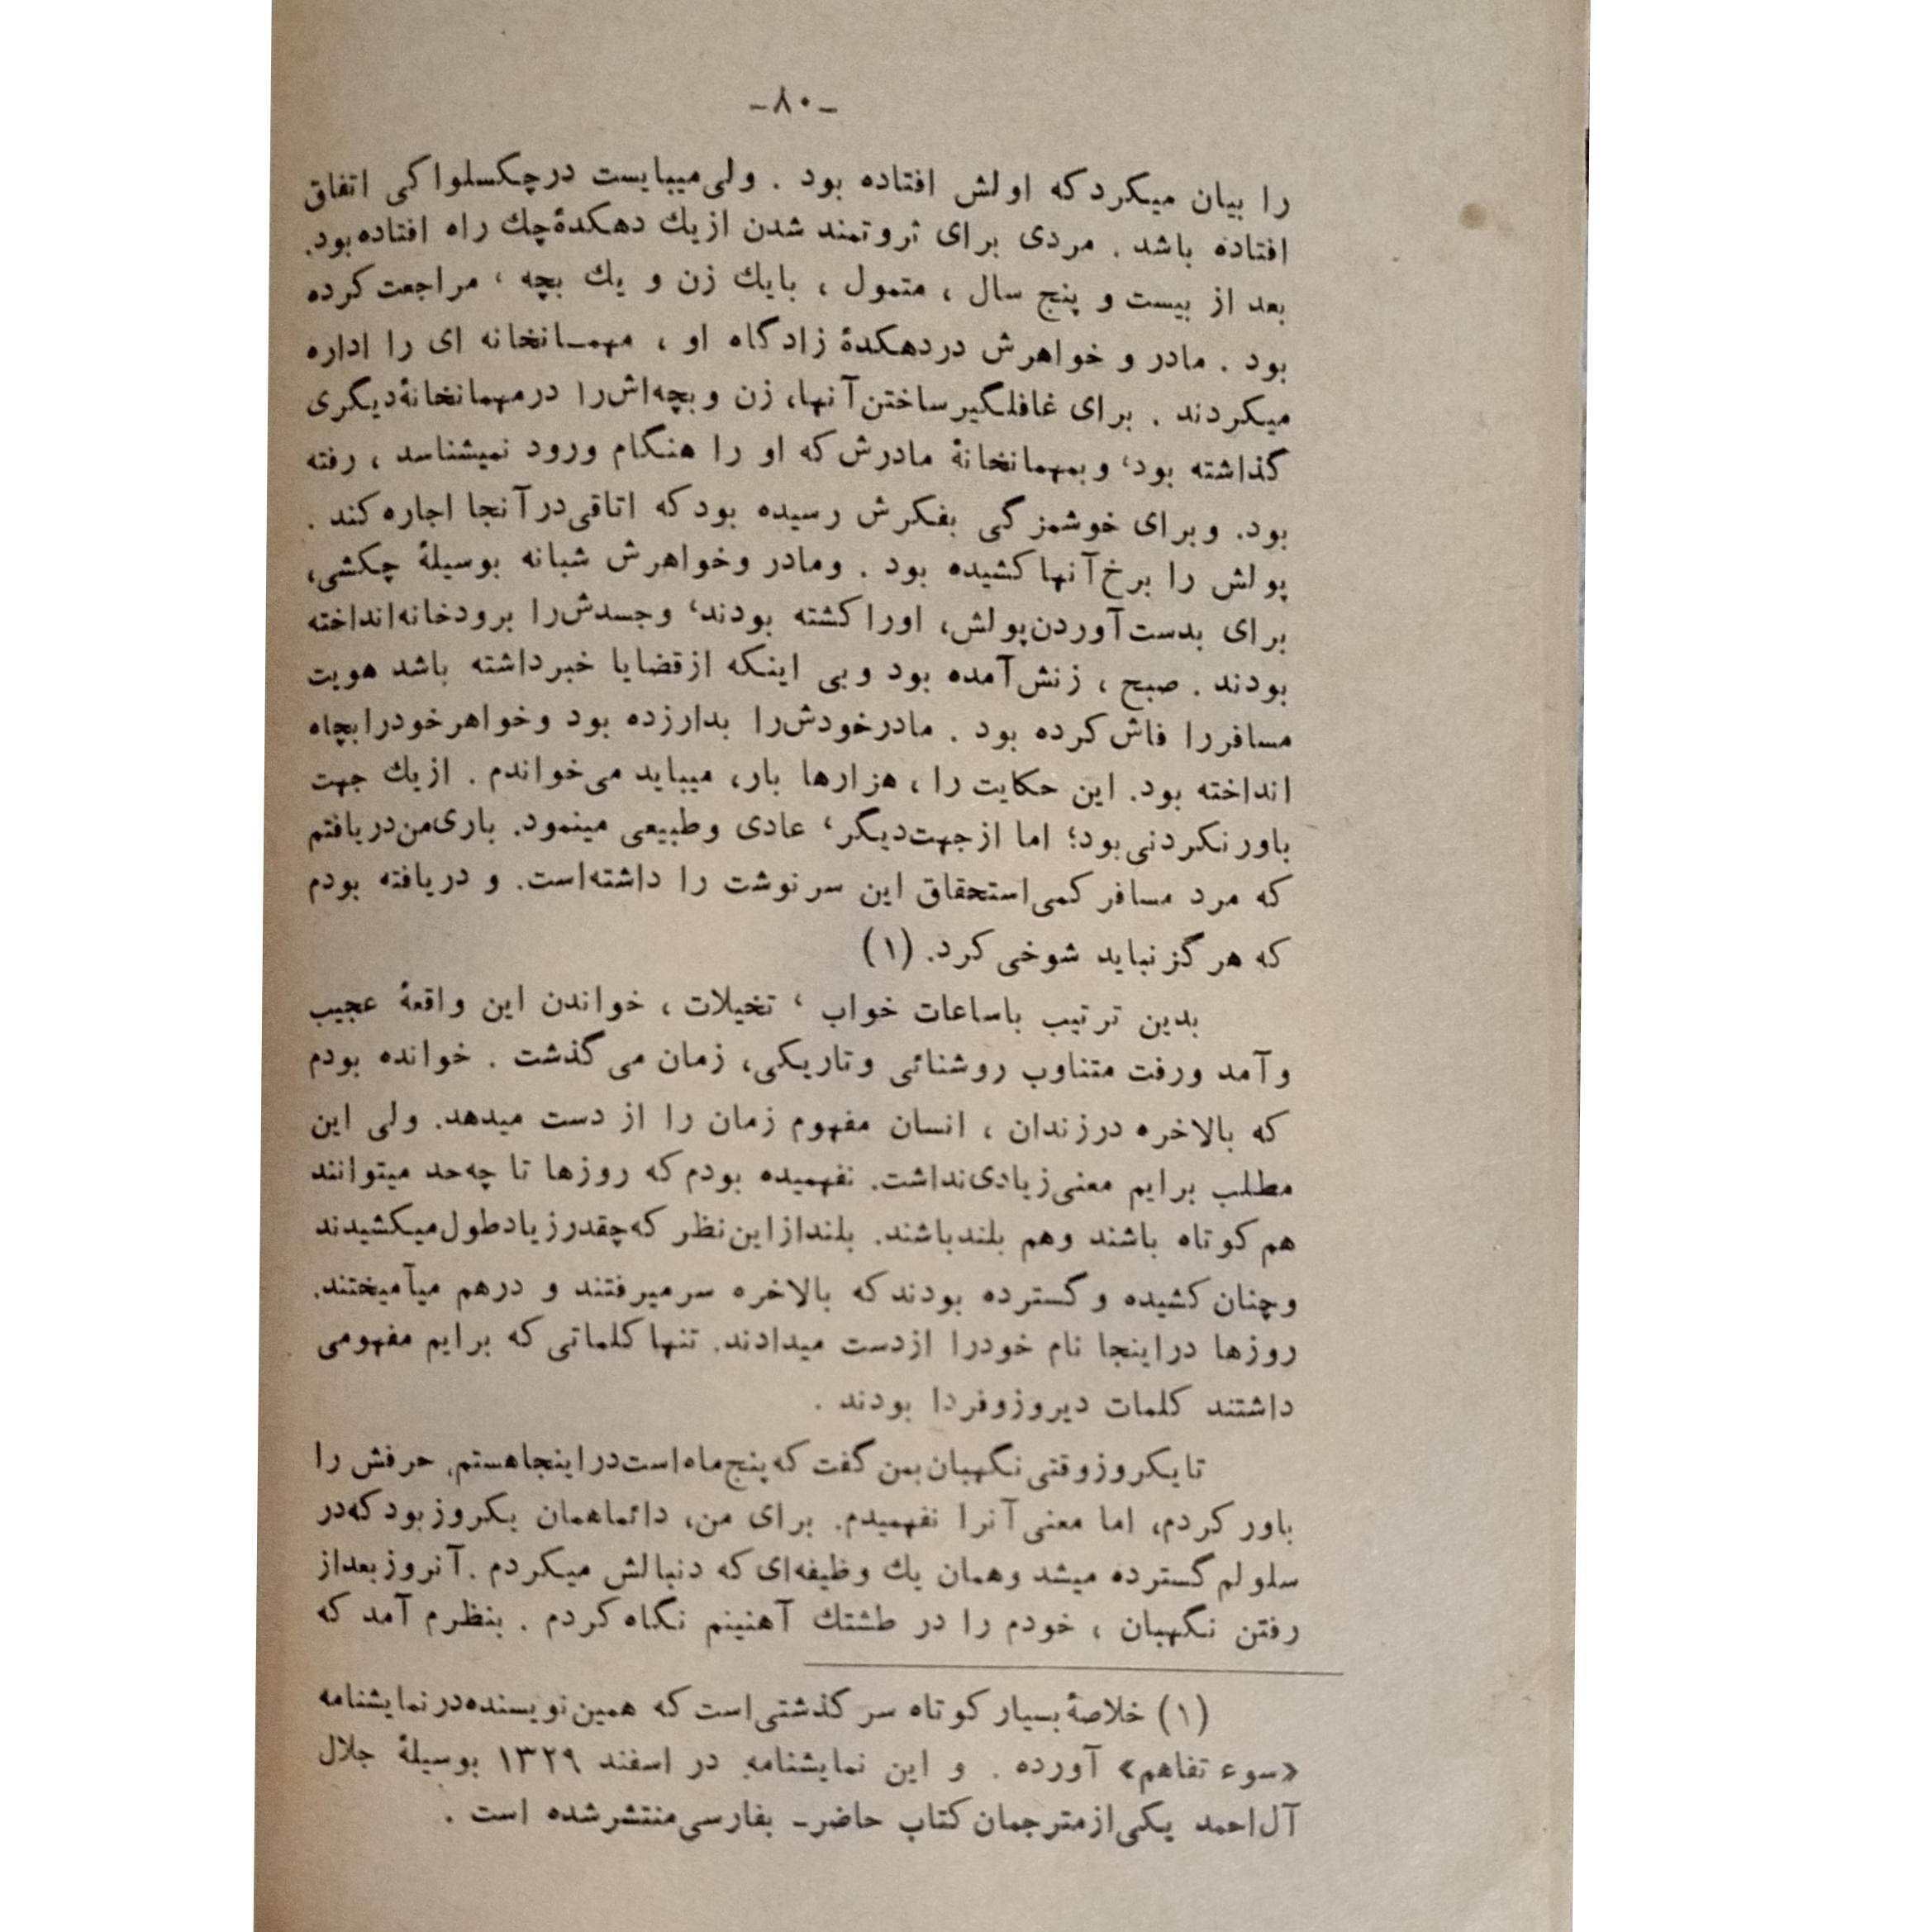 -۸۰-
را بیان میکرد که اولش افتاده بود . ولی میبایست در چکسلواکی اتفاق
افتاده باشد . مردی برای ثروتمند شدن از یك دهکدهٔ چك راه افتاده بود.
بعد از بیست و پنج سال ، متمول ، بایك زن و یك بچه ، مراجعت کرده
بود . مادر و خواهرش در دهکدهٔ زادگاه او ، مهمـانخانه ای را اداره
میکردند . برای غافلگیر ساختن آنها، زن و بچه‌اش را در مهمانخانهٔ دیگری
گذاشته بود، و بمهمانخانهٔ مادرش که او را هنگام ورود نمیشناسد ، رفته
بود. و برای خوشمزگی بفکرش رسیده بود که اتاقی در آنجا اجاره کند .
پولش را برخ آنها کشیده بود . و مادر و خواهرش شبانه بوسیلهٔ چکشی،
برای بدست آوردن پولش، او را کشته بودند، و جسدش را برودخانه انداخته
بودند . صبح ، زنش آمده بود و بی اینکه از قضایا خبر داشته باشد هویت
مسافر را فاش کرده بود . مادر خودش را بدار زده بود و خواهر خود را بچاه
انداخته بود. این حکایت را ، هزارها بار، میباید می‌خواندم . از یك جهت
باور نکردنی بود؛ اما از جهت دیگر، عادی و طبیعی مینمود. باری من دریافتم
که مرد مسافر کمی استحقاق این سرنوشت را داشته‌است. و دریافته بودم
که هرگز نباید شوخی کرد. (۱)
بدین ترتیب با ساعات خواب ، تخیلات ، خواندن این واقعهٔ عجیب
و آمد و رفت متناوب روشنائی و تاریکی، زمان می گذشت . خوانده بودم
که بالاخره در زندان ، انسان مفهوم زمان را از دست میدهد. ولی این
مطلب برایم معنی زیادی نداشت. نفهمیده بودم که روزها تا چه‌حد میتوانند
هم کوتاه باشند و هم بلند باشند. بلند از این نظر که چقدر زیاد طول میکشیدند
و چنان کشیده و گسترده بودند که بالاخره سر میرفتند و درهم میآمیختند.
روزها در اینجا نام خود را از دست میدادند. تنها کلماتی که برایم مفهومی
داشتند کلمات دیروز و فردا بودند .
تا یکروز وقتی نگهبان بمن گفت که پنج ماه است در اینجا هستم. حرفش را
باور کردم، اما معنی آنرا نفهمیدم. برای من، دائما همان یکروز بود که در
سلولم گسترده میشد و همان یك وظیفه‌ای که دنبالش میکردم . آنروز بعد از
رفتن نگهبان ، خودم را در طشتك آهنینم نگاه کردم . بنظرم آمد که
(۱) خلاصهٔ بسیار کوتاه سر گذشتی است که همین نویسنده در نمایشنامه
«سوء تفاهم» آورده . و این نمایشنامه در اسفند ۱۳۲۹ بوسیلهٔ جلال
آل احمد یکی از مترجمان کتاب حاضر- بفارسی منتشر شده است .